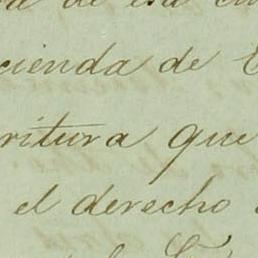 de esa
cienda de
critura que
el derecho